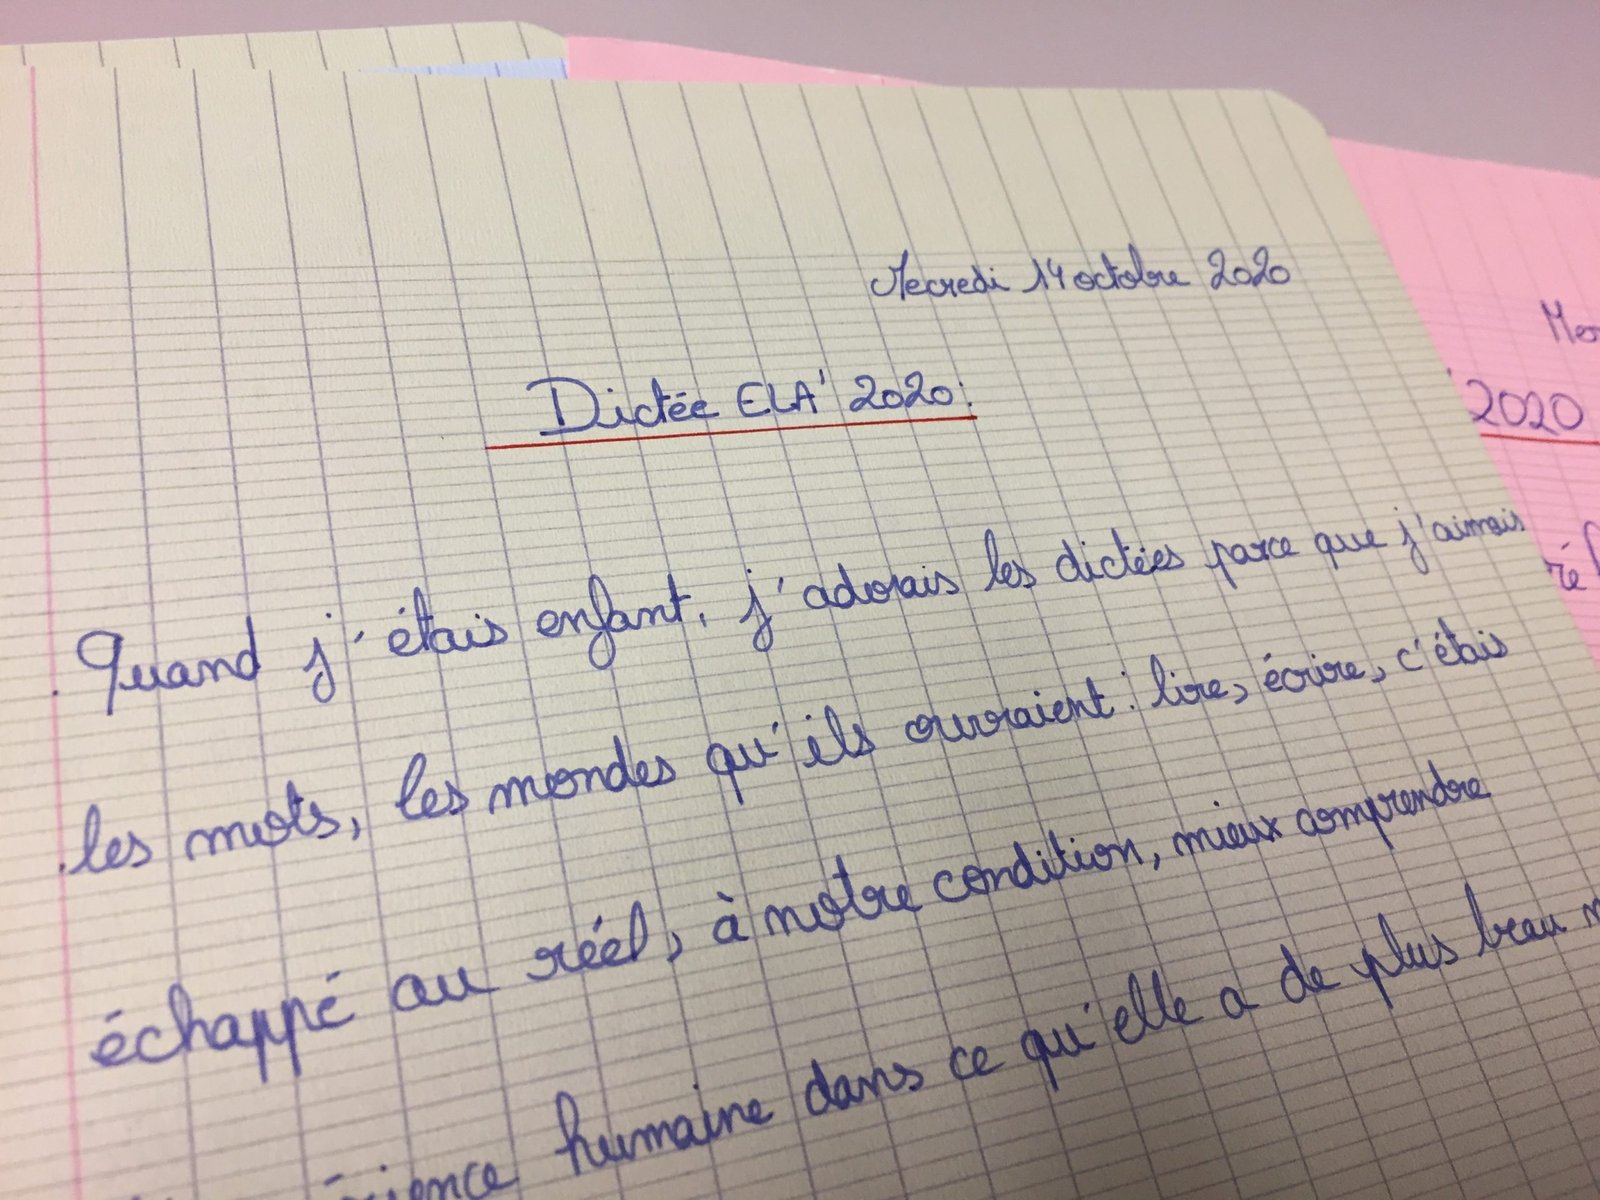 Mecredi 14 octobre 2020
Dictée ELA' 2020:
Quand j'étais enfant, j'adorais les dictées parce que j'aimais
les mots, les mondes qu'ils ouvraient: lire, écrire, c'étais
échappé au réel, à notre condition, mieux comprendre
humaine dans ce qu'elle a de plus beau
2020